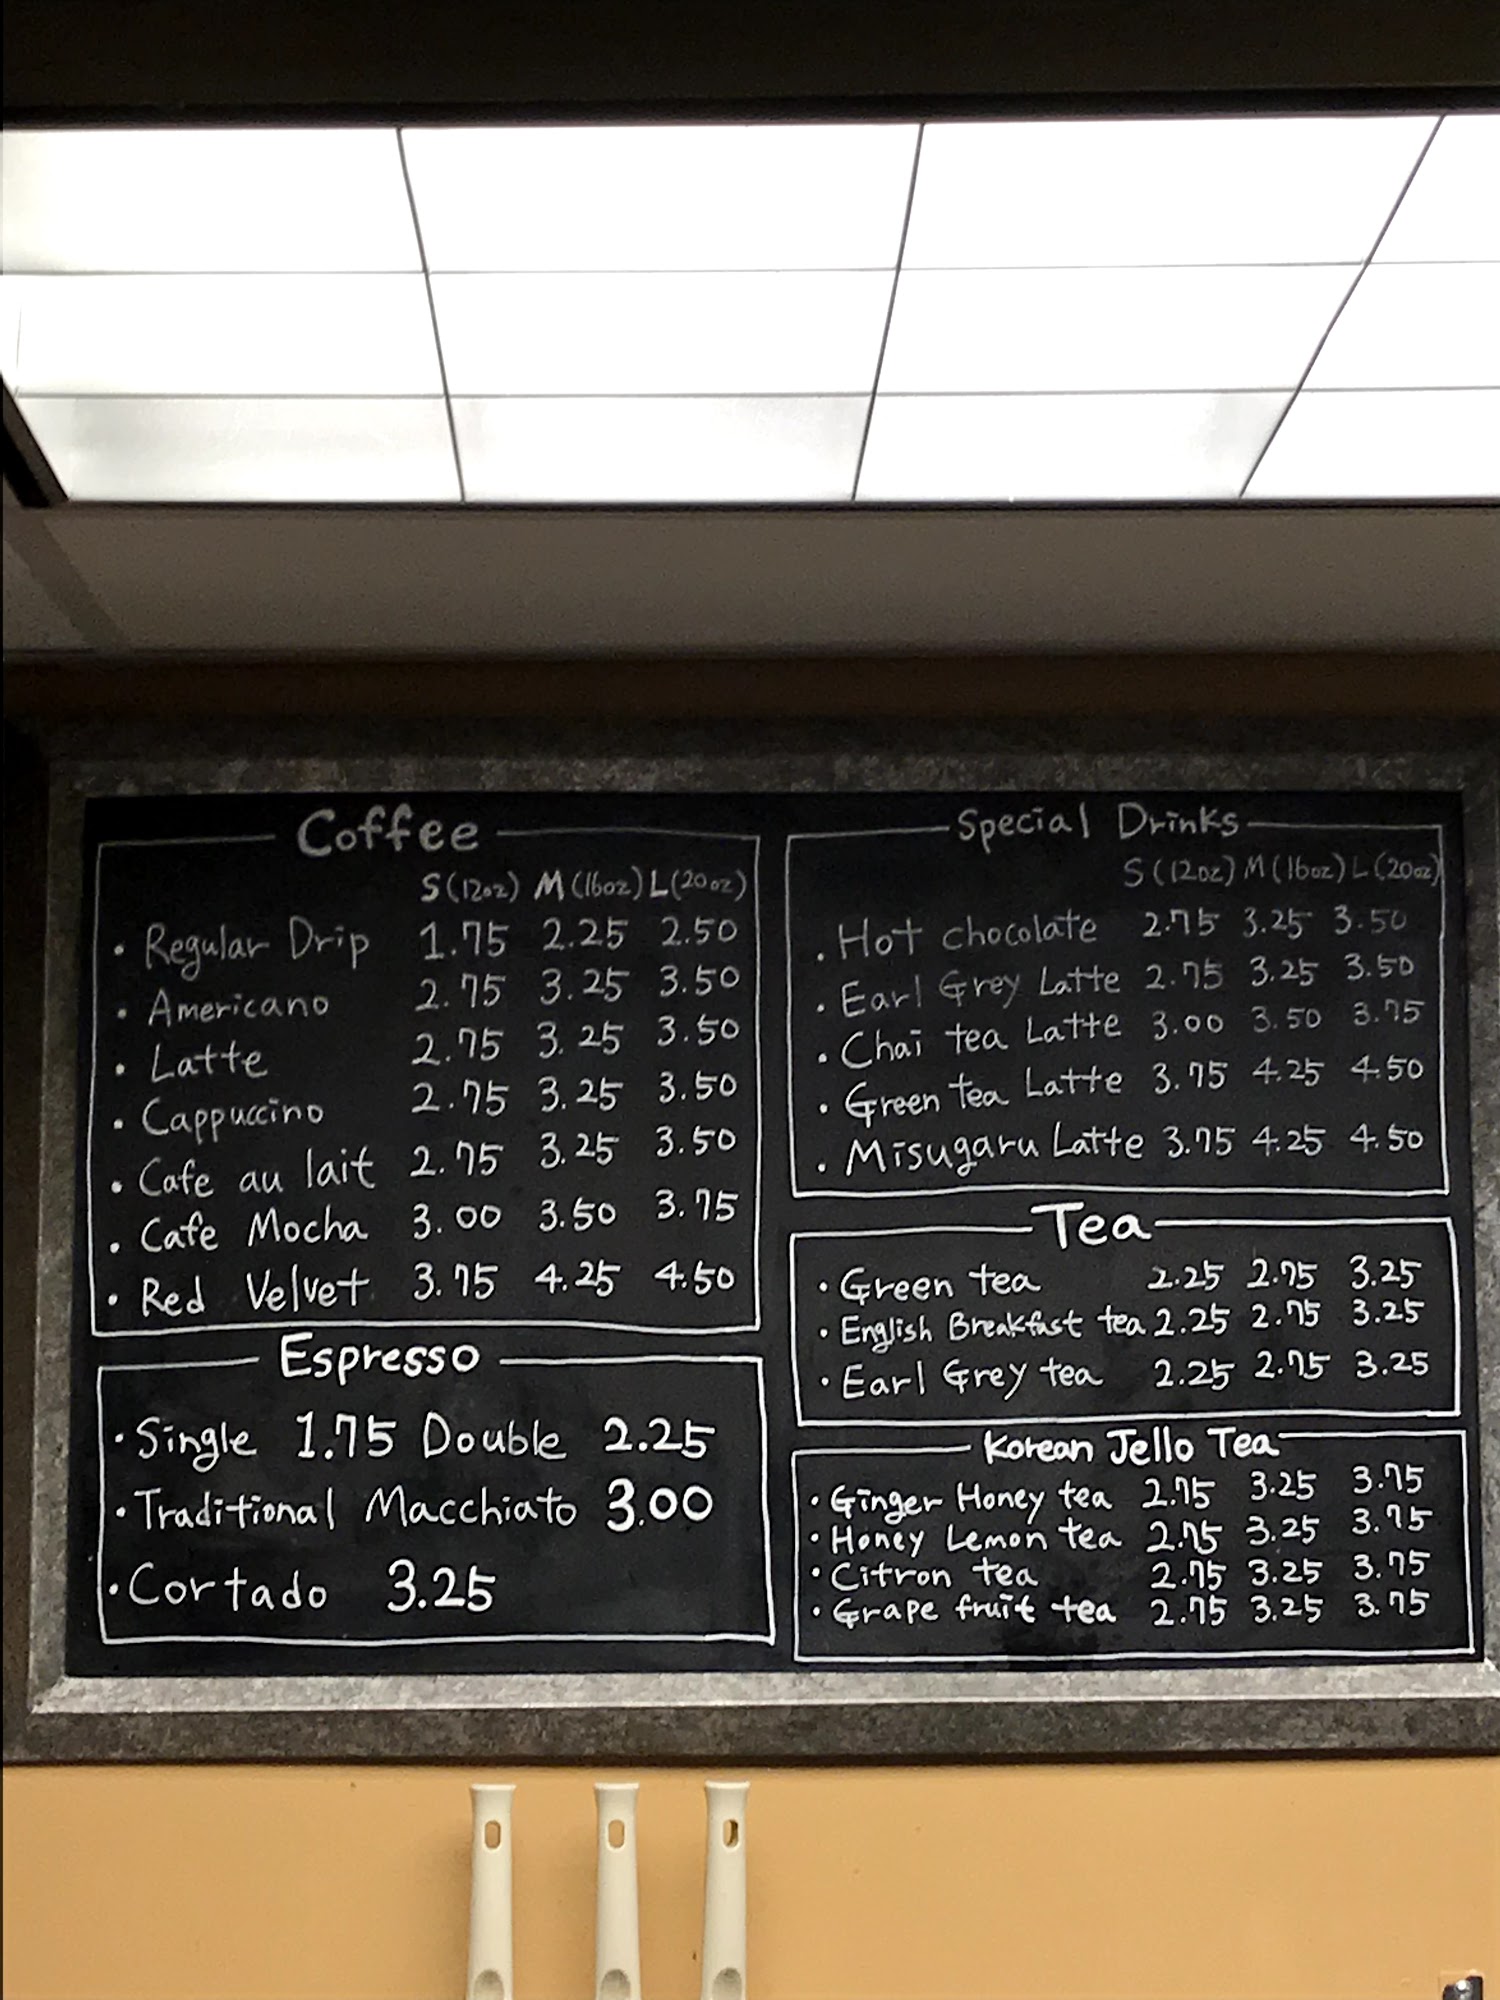 Coffee
S (12oz) M (16oz) L (20oz)
• Regular Drip 1.75 2.25 2.50
• Americano 2.75 3.25 3.50
• Latte 2.75 3.25 3.50
• Cappuccino 2.75 3.25 3.50
• Cafe au lait 2.75 3.25 3.50
• Cafe Mocha 3.00 3.50 3.75
• Red Velvet 3.75 4.25 4.50
Espresso
• Single 1.75 Double 2.25
• Traditional Macchiato 3.00
• Cortado 3.25
Special Drinks
S (12oz) M (16oz) L (20oz)
• Hot chocolate 2.75 3.25 3.50
• Earl Grey Latte 2.75 3.25 3.50
• Chai tea Latte 3.00 3.50 3.75
• Green tea Latte 3.75 4.25 4.50
• Misugaru Latte 3.75 4.25 4.50
Tea
• Green tea 2.25 2.75 3.25
• English Breakfast tea 2.25 2.75 3.25
• Earl Grey tea 2.25 2.75 3.25
Korean Jello Tea
• Ginger Honey tea 2.75 3.25 3.75
• Honey Lemon tea 2.75 3.25 3.75
• Citron tea 2.75 3.25 3.75
• Grape fruit tea 2.75 3.25 3.75